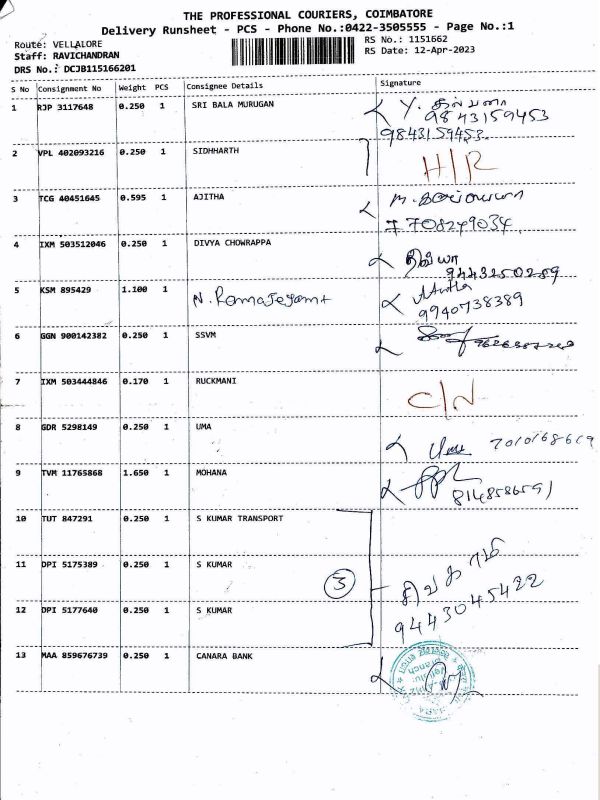 THE PROFESSIONAL COURIERS, COIMBATORE
Delivery Runsheet - PCS - Phone No.:0422-3505555 - Page No.:1
Route: VELLALORE
Staff: RAVICHANDRAN
DRS No.: DCJB115166201
RS No.: 1151662
RS Date: 12-Apr-2023
S No Consignment No Weight PCS Consignee Details Signature
1 RJP 3117648 0.250 1 SRI BALA MURUGAN
9843159453
9843159453
2 VPL 402093216 0.250 1 SIDHHARTH H/R
3 TCG 40451645 0.595 1 AJITHA
7708249034
4 IXM 503512046 0.250 1 DIVYA CHOWRAPPA திவ்யா
9443250259
5 KSM 895429 1.100 1
9940738389
6 GGN 900142382 0.250 1 SSVM
7 IXM 503444846 0.170 1 RUCKMANI C/N
8 GDR 5298149 0.250 1 UMA Uma
9 TVM 11765868 1.650 1 MOHANA
8148586591
10 TUT 847291 0.250 1 S KUMAR TRANSPORT
11 DPI 5175389 0.250 1 S KUMAR
3
12 DPI 5177640 0.250 1 S KUMAR
9443045422
13 MAA 859676739 0.250 1 CANARA BANK